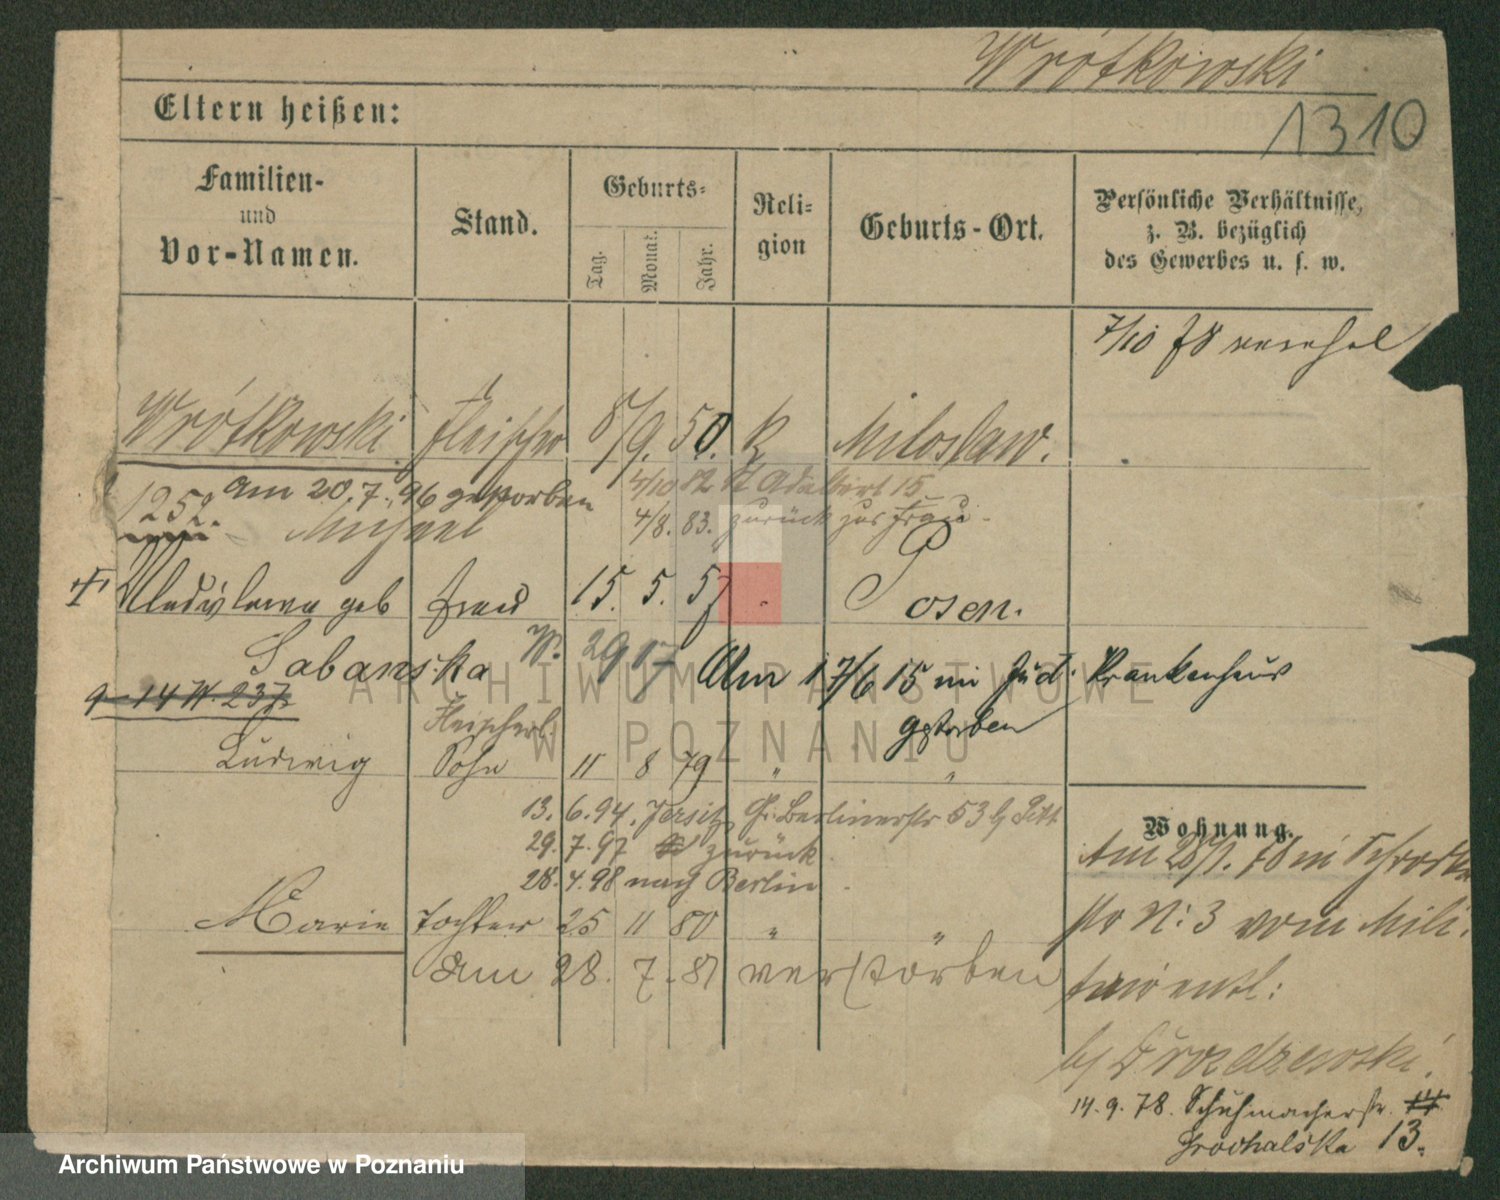 Wrótkowski
1310
Eltern heißen:
Familien-
und
Vor-Namen.
Stand.
Geburts-
Tag.
Monat.
Jahr.
Reli-
gion
Geburts-Ort.
Persönliche Verhältnisse,
z. B. bezüglich
des Gewerbes u. s. w.
7/10
Wrótkowski Fleischer 8/9. 50. K Miloslaw.
am 20.7.96 gestorben
4/10 82 St Adalbert 15
1252.
Michael
4/8. 83. zurück zur Frau.
Wladislawa geb Frau 15. 5. 57 Posen.
Sabanska
W. 29 17
Am 17/6 15 im Jüd. Krankenhaus
gestorben
9 14 W. 237
Fleischerl.
Ludwig Sohn 11 8 79 " "
13. 6. 94. Jersitz, Gr. Berlinerstr 53 b/
29. 7. 97 zurück
28. 4. 98 nach Berlin
Marie Tochter 25 11 80 " "
am 28. 7. 81 verstorben
Wohnung.
Am 28/1. 78 in Schrodka
No 3 vom Mili
tair entl:
b/ Drozdzewski.
14. 9. 78. Schuhmacherstr. 14
Trochalska 13.
ARCHIWUM PAŃSTWOWE
W POZNANIU
Archiwum Państwowe w Poznaniu